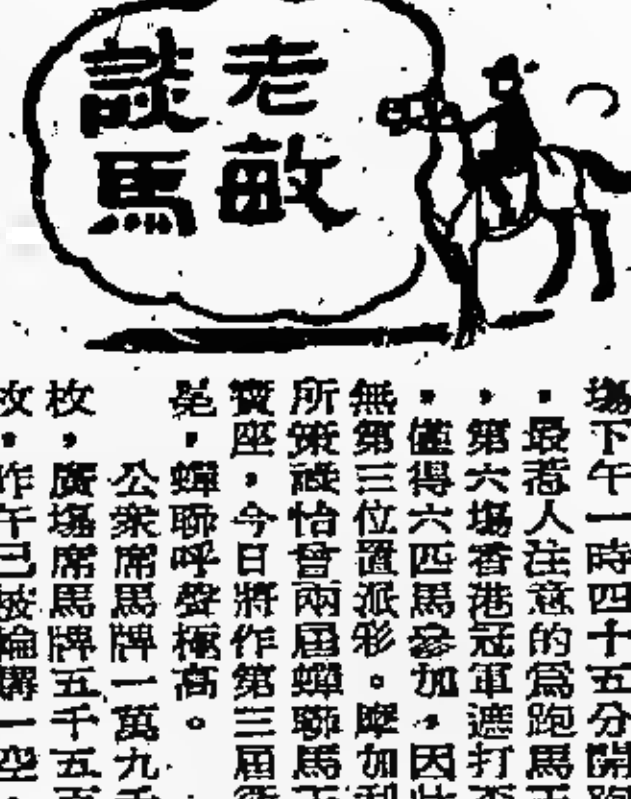 老敏
談馬
塲下午一時四十五分開跑
最惹人注意的爲跑馬王
，第六塲香港冠軍遮打盃
。僅得六匹馬參加，因此
無第三位置派彩。摩加利
所策祿怡曾兩屆蟬聯馬王
寶座，今日將作第三屆衛
冕，蟬聯呼聲極高。
公衆席馬牌一萬九千
枚，廣塲席馬牌五千五百
枚，昨午已被輪購一空，